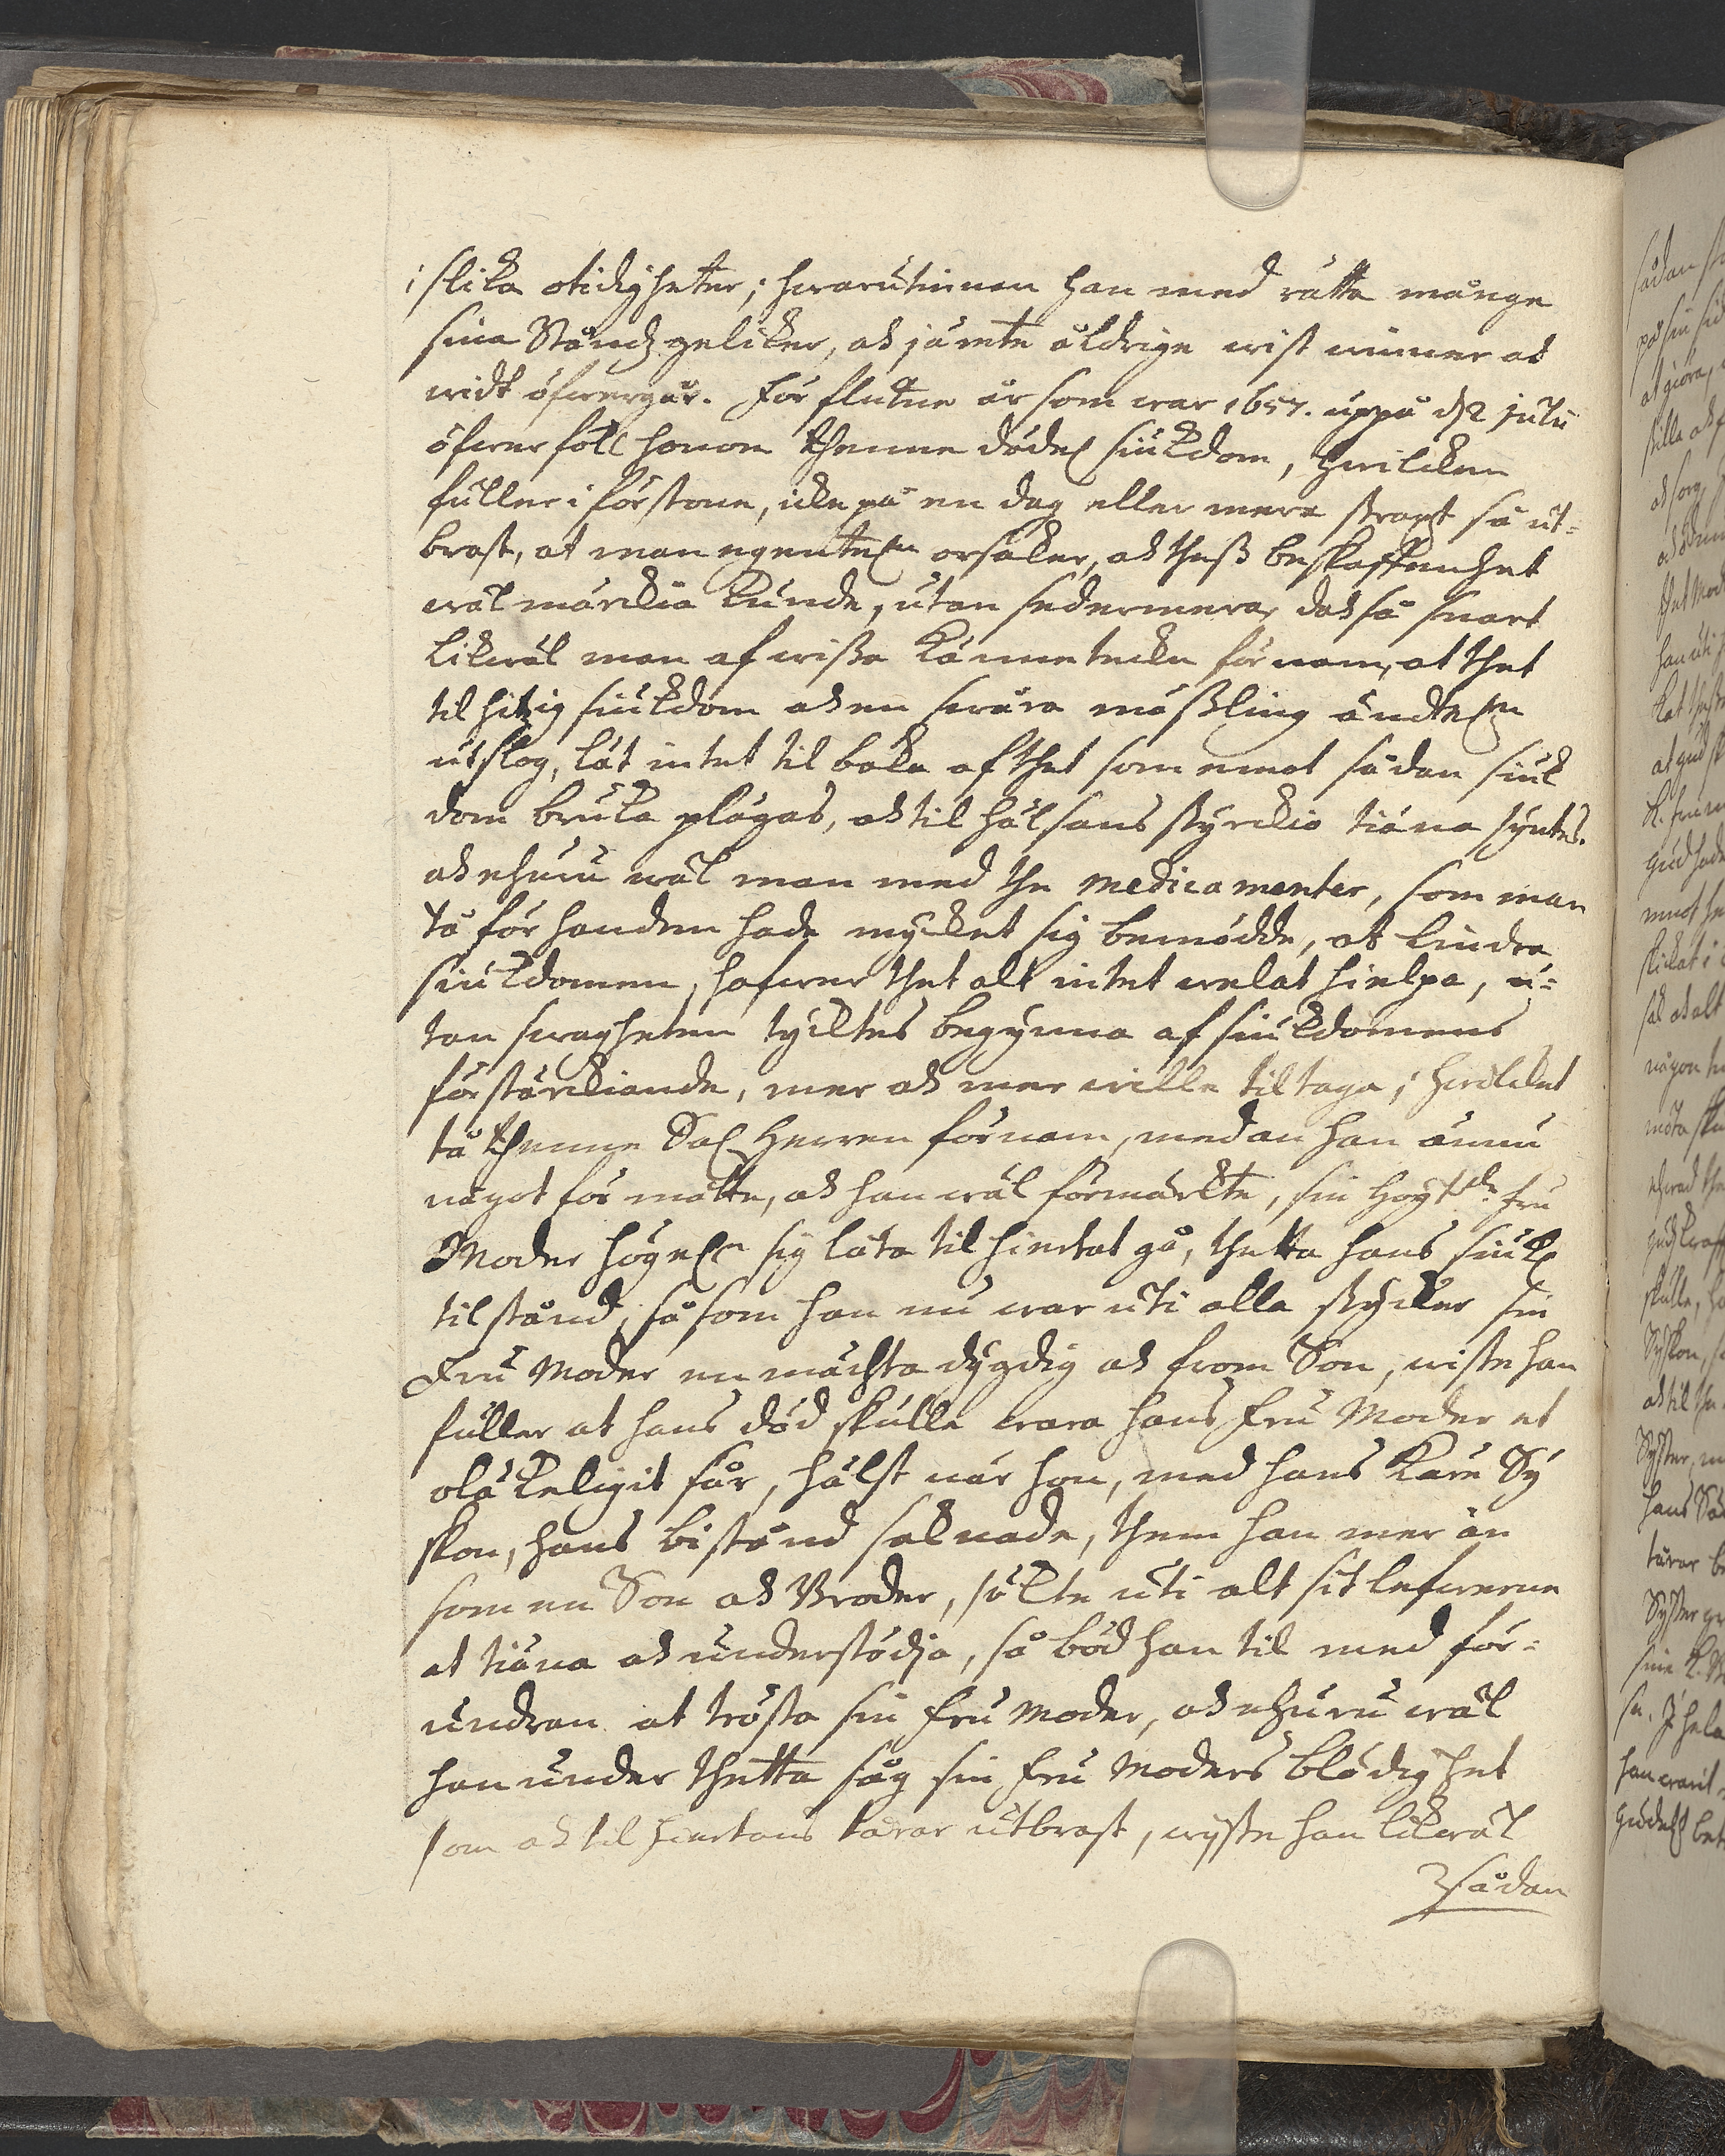 i slika otidigheter; hwarutinnan han med rätta månge
sina Ståndz gelikar, och jämte åldrige wist winner och
widt öfwergår. För slutne år som war 1657. uppå d. 2 julii
öfwerföll honom thenne dödel. siukdom, hwilcken
fuller i förstone, icke på en dag eller mera strax så ut-
brast, at man egentel:n orsaker, och theß beskaffenhet
wäl märckia kunde, utan sedermera, doch så snart
likwäl man af wißa kännetecken förnam, at thet
til hitzig siukdom och en swåra mäßling ändtel:n
utslog, lät intet til baka af thet som emot sådan siuk
dom bruka plägas, och til hälsans styrckio tiäna syntes.
och ehuru wäl man med the medicamenter, som man
tå för handen hade mycket sig bemödde, at lindra
siukdomen, hafwer thet alt intet welat hielpa, u-
tan swagheten tycktes begynna af siukdomens
förstärckiande, mer och mer wille tiltaga; hwilcket
tå thenne Sal. Herren förnam, medan han ännu
något för måtte, och han wäl förmärkte, sin Högt:de Fru
Moder högel:n sig låta til hiertat gå, thetta hans siukl.
tilstånd, så som han nu war uti alla stycker sin
Fru Moder en mächta dygdig och from Son, wiste han
fuller at hans död skulle wara hans Fru Moder et
oläkeligit sår, hälst när hon, med hans Kära Sy
skon, hans bistånd saknade, them han mer än
som en Son och Broder, sökte uti alt sit lefwerne
at tiäna och understödja, så böd han til med för-
undran at trösta sin Fru Moder, och ehuru wäl
han under thetta såg sin Fru Moders blödighet
som och til hiertans tårar utbrast, wyste han likwäl
sådan